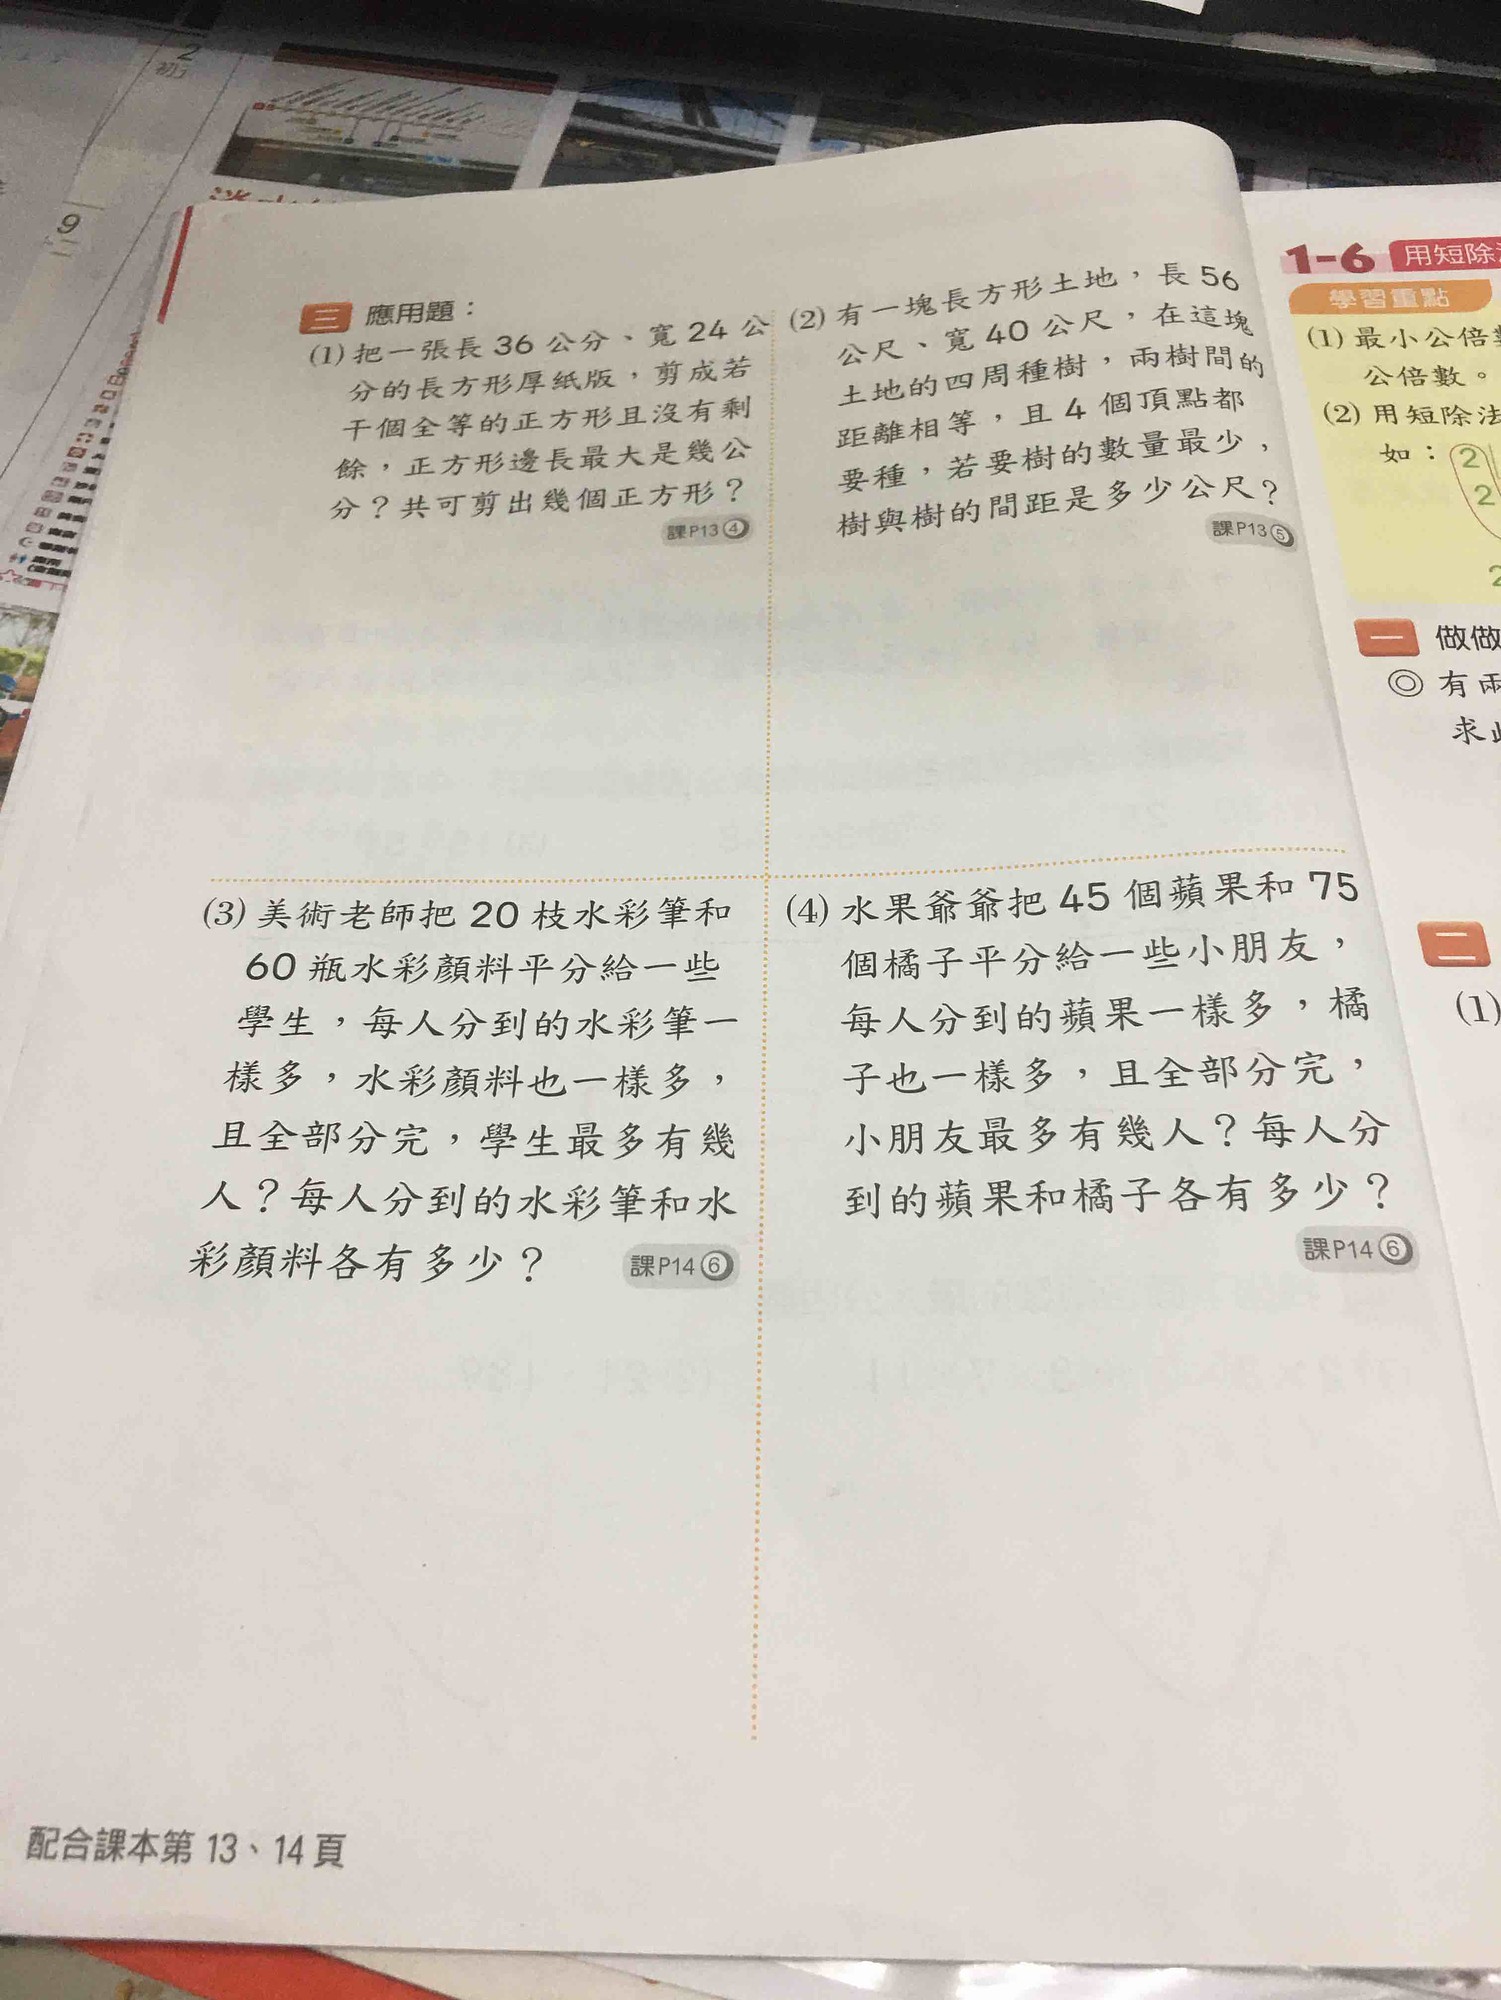 三 應用題：
(1) 把一張長 36 公分、寬 24 公
分的長方形厚紙版，剪成若
干個全等的正方形且沒有剩
餘，正方形邊長最大是幾公
分？共可剪出幾個正方形？
課P13④
(2) 有一塊長方形土地，長 56
公尺、寬 40 公尺，在這塊
土地的四周種樹，兩樹間的
距離相等，且 4 個頂點都
要種，若要樹的數量最少，
樹與樹的間距是多少公尺？
課P13⑤
(3) 美術老師把 20 枝水彩筆和
60 瓶水彩顏料平分給一些
學生，每人分到的水彩筆一
樣多，水彩顏料也一樣多，
且全部分完，學生最多有幾
人？每人分到的水彩筆和水
彩顏料各有多少？
課P14⑥
(4) 水果爺爺把 45 個蘋果和 75
個橘子平分給一些小朋友，
每人分到的蘋果一樣多，橘
子也一樣多，且全部分完，
小朋友最多有幾人？每人分
到的蘋果和橘子各有多少？
課P14⑥
配合課本第 13、14 頁
1-6 用短除
學習重點
(1) 最小公倍
公倍數。
(2) 用短除法
如：2
2
2
一 做做
◎ 有兩
求
二
(1)
2
9